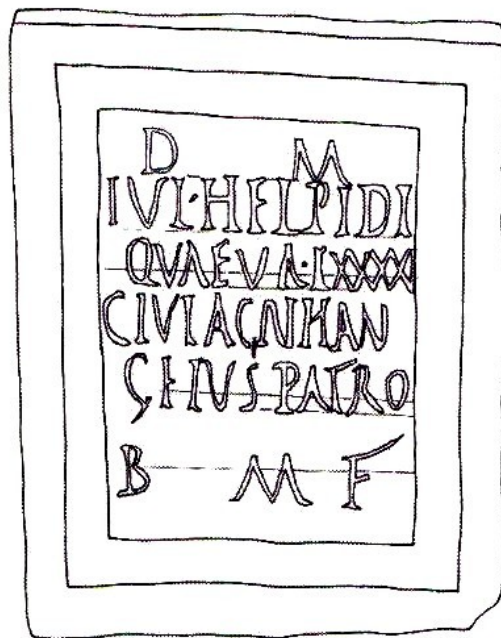 D M
IVL·HELPIDI
QVAEVA·LXXXX
CIVLAGNHAN
Ç EIVS PATRO
B M F